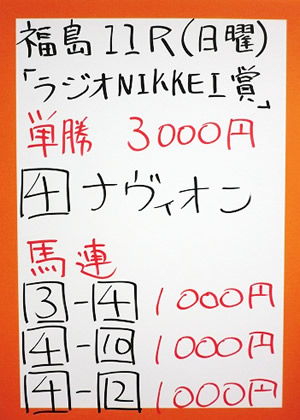 福島11R(日曜)
「ラジオNIKKEI賞」
単勝 3000円
4 ナヴィオン
馬連
3-4 1000円
4-10 1000円
4-12 1000円